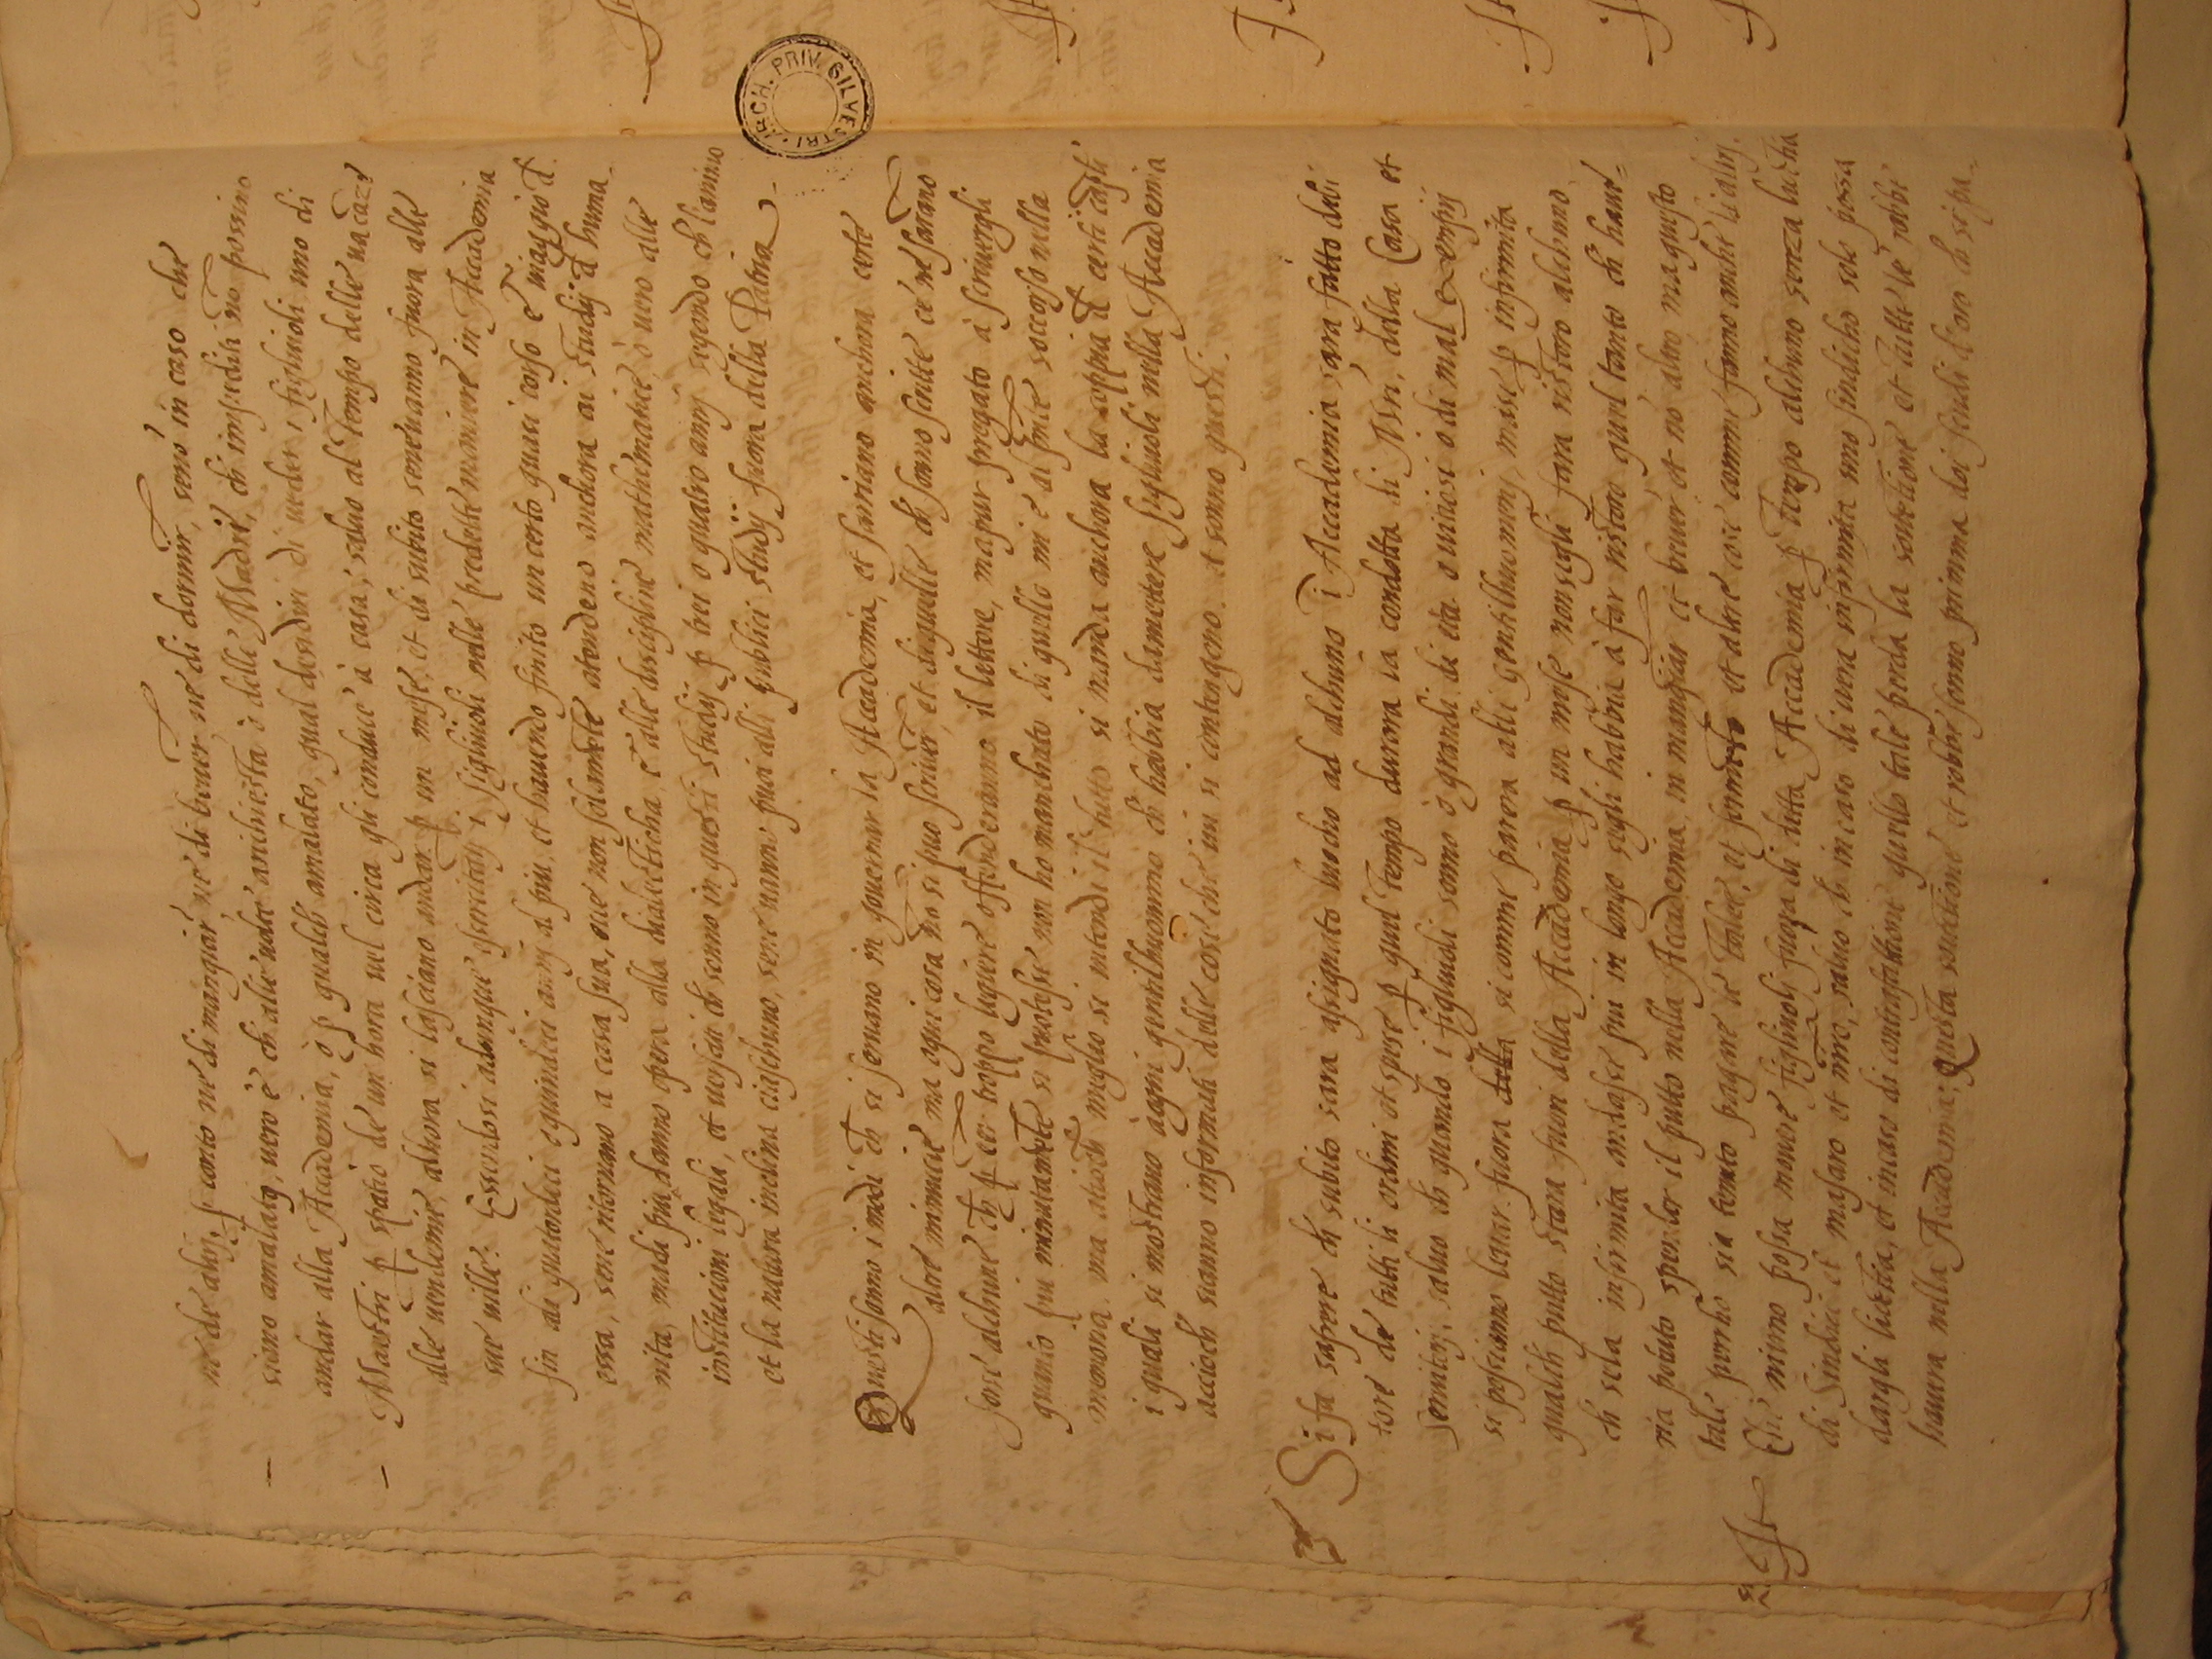 ni de altri, p conto ne di mangiar, ne di bever ne di dormir, seno in caso che
siano amalatj, vero è ch alle volte a richiesta ò delli Madri, ch impediti nō possino
andar alla Accademia, ò p qualch amalato, qual desideri di veder i figliuoli uno di
Maestri p spatio de un hora vel circa gli conduce à casa, salvo al tempo delle vacāze
alle vendemie, alhora si lasciano andar p un mese, et di subito seneuanno fuora alle
sue ville. Essendosi adonque esercitatj i figliuoli nelle predette maniere in Accademia
fin adi quatordeci o quindeci annj al piu, et havendo finito un certo quasi corso è maggio d
essa, sene ritornano a casa sua, ove non solamēte atendeno anchora ai studij d huma
nita, ma di piu danno opera alla dialecticha, e alle discipline mathematice, o vero alle
institucioni legali, et versati ch sonno in questi studij p trei o quatro annj segondo ch l'animo
et la natura inclina ciaschuno, sene vanno puoi alli publici studij fuora della Patria
Questi sonno i modi ch si servano in governar la Accademia, et sariano anchora certe
altre minucie ma ogni cosa nō si puo scriver, et di quelle ch sonno scritte ce ne sarano
forse alchune ch p eer troppo legiere offenderanno il lettore, ma pur pregato à scriverli
quanto piu minutamēte si potesse non ho manchato di quello mi è al pnte soccorso nella
memoria. ma atioch meglio si intendi il tutto si manda anchora la coppia d certi capli
i quali si mostrano àogni gentilhuomo ch habbia da mettere figliuoli nella Accademia
accioch sianno informati delle cose che in si contengono. et sonno questi.
Si fa sapere ch subito sara assignato luocho ad alchuno ī Accademia, sara fatto debi
tore de tutti li ordini et spese p quel tempo durera la condotta di Mri, della Casa et
servitorj, salvo ch quando i figliuoli sonno ò grandi di eta o viciosi o di mal exempij
si possiano levar fuora della si comme parera alli gentilhuominj, mase p infirmita
qualch putto stara fuori della Accademia p un mese non segli fara ristoro alchuno
ch se la infirmita andasse piu in longo segli habbia à far ristoro quel tanto ch have=
ria potuto spender il putto nella Accademia in mangiar et bever et nō altro ma questo
tale percho sia tenuto pagare le taliee, et formēto et altre cose comme fanno anche li altri.
It Che niuno possa movere figliuoli fuora di detta Accademia p tempo alchuno senza lictia
di Sindici et masaro et mro, salvo ch in caso di vera infirmita uno sindicho solo possa
dargli lictia, et in caso di contrafattione quello tale perda la sortione et tutte le robbe
havera nella Accademia; Questa sortione et robbe sonno primma doi scudi d'oro ch si pa-
ARCH. PRIV. SILVESTRI